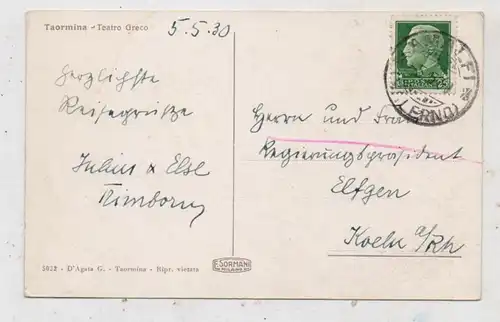 Taormina - Teatro Greco
5.5.30
Herzlichste
Reisegrüsse
Julius & Else
Herrn und Frau
Regierungspräsident
Elfgen
Koeln a/Rh
25
(SALERNO)
5022 - D'Agata G. - Taormina - Ripr. vietata
F. SORMANI
MILANO